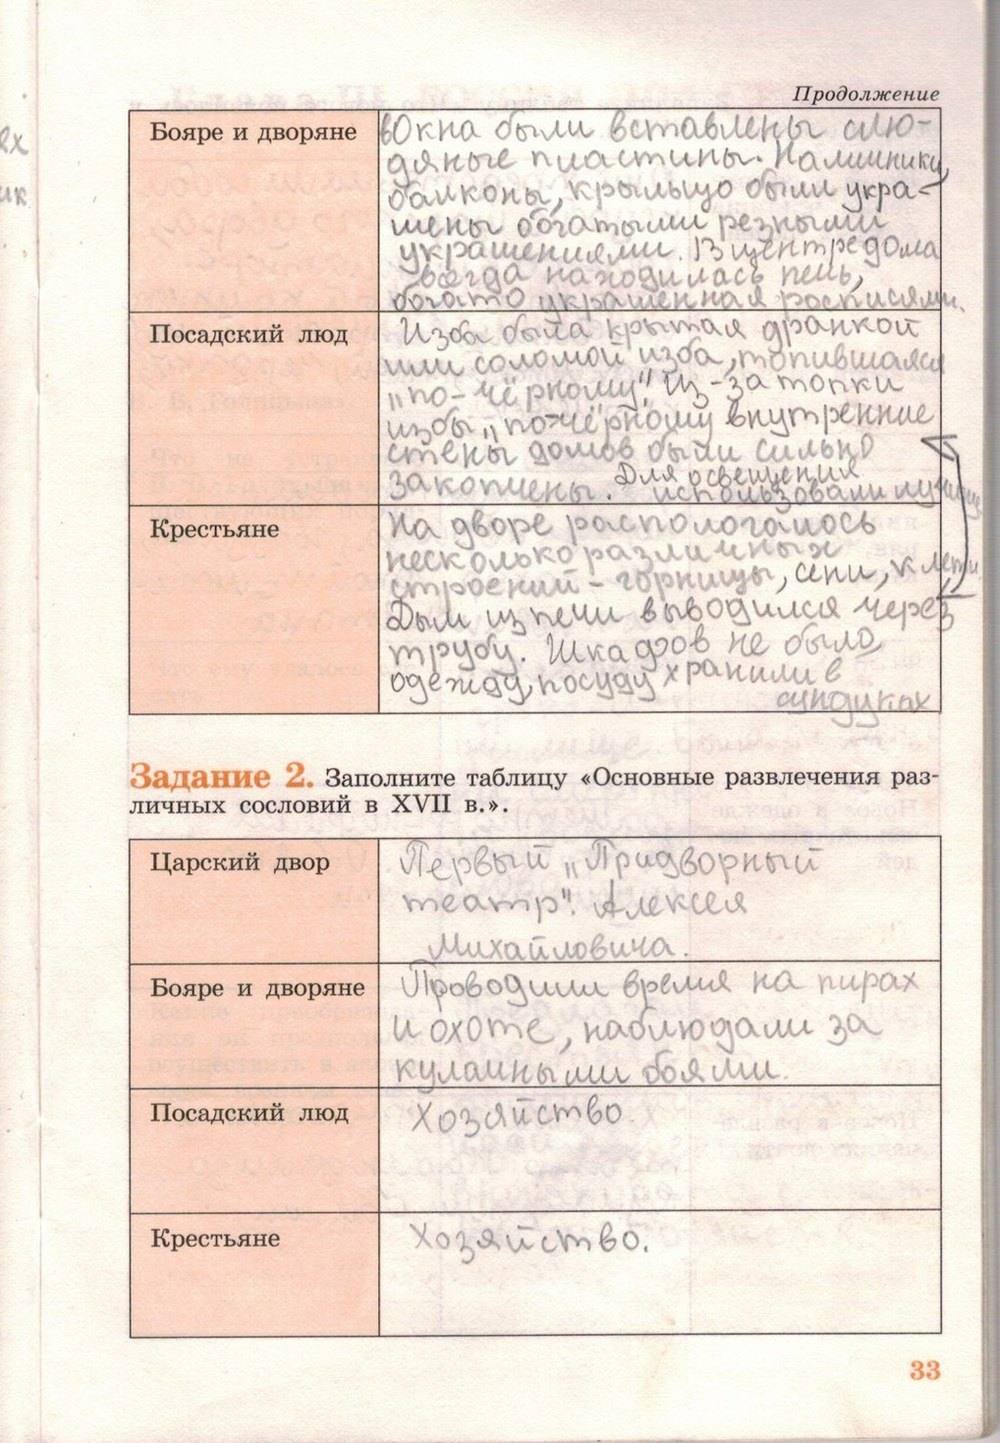 Продолжение
Бояре и дворяне
в Окна были вставлены слю-
дяные пластины. Наличники,
балконы, крыльцо были укра-
шены богатыми резными
украшениями. В центре дома
всегда находилась печь,
богато украшенная росписями.
Посадский люд
Изба была крытая дранкой
или соломой изба, топившаяся
"по-чёрному". Из-за топки
избы "по-чёрному" внутренние
стены домов были сильно
закопчены. Для освещения
использовали лучины
Крестьяне
На дворе распологалось
несколько различных
строений - горницы, сени, клети.
Дым из печи выводился через
трубу. Шкафов не было,
одежду, посуду хранили в
сундуках
Задание 2. Заполните таблицу «Основные развлечения раз-
личных сословий в XVII в.».
Царский двор
Первый "Придворный
театр". Алексея
Михайловича.
Бояре и дворяне
Проводили время на пирах
и охоте, наблюдали за
кулачными боями.
Посадский люд
Хозяйство.
Крестьяне
Хозяйство.
33